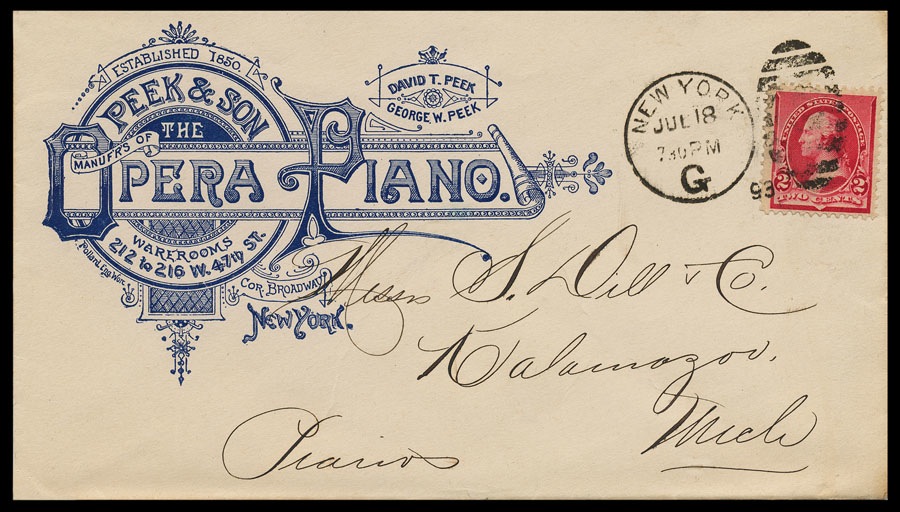 ESTABLISHED 1850.
PEEK & SON
MANUF'RS OF
THE
OPERA PIANO.
WAREROOMS
212 to 216 W. 47TH ST.
COR. BROADWAY
NEW YORK.
DAVID T. PEEK
GEORGE W. PEEK
NEW YORK
JUL 18
730 PM
G
93
UNITED STATES POSTAGE
2 2
TWO CENTS
Messrs S. Dill & Co.
Kalamazoo.
Mich
Pianos